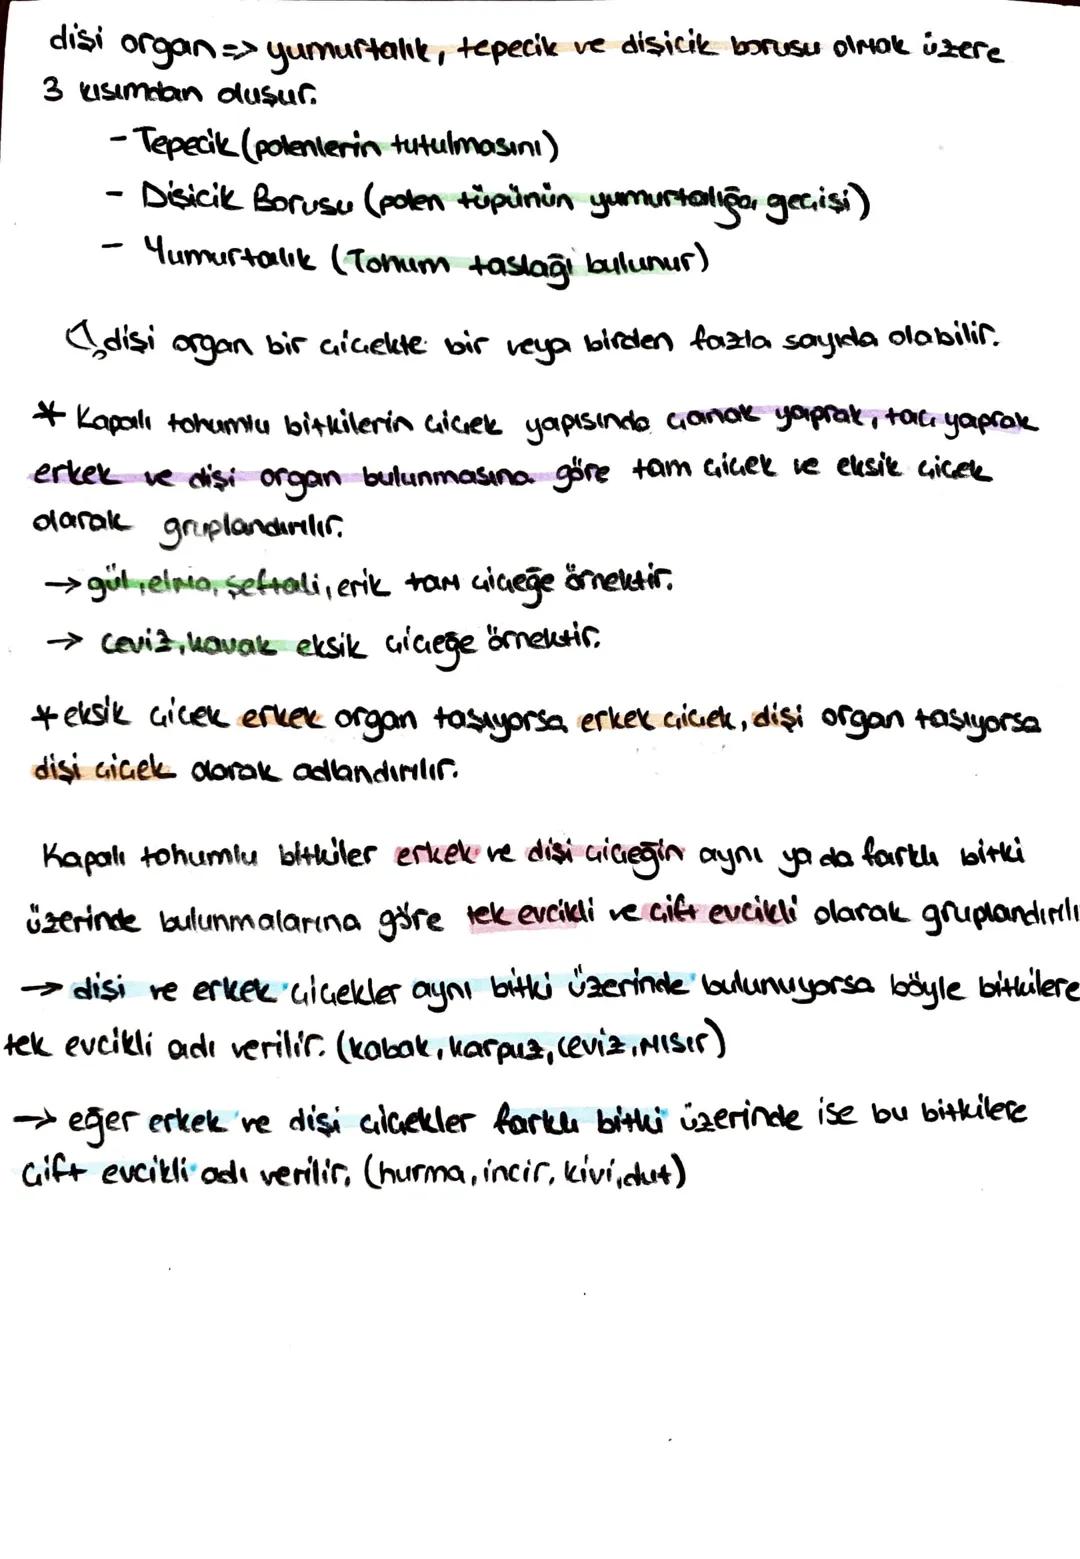 dişi organ => yumurtalık, tepecik ve dişicik borusu olmak üzere
3 kısımdan oluşur.
- Tepecik (polenlerin tutulmasını)
- Dişicik Borusu (polen tüpünün yumurtalığa geçişi)
- Yumurtalık (Tohum taslağı bulunur)
↳ dişi organ bir çiçekte bir veya birden fazla sayıda olabilir.
* Kapalı tohumlu bitkilerin çiçek yapısında çanak yaprak, taç yaprak
erkek ve dişi organ bulunmasına göre tam çiçek ve eksik çiçek
olarak gruplandırılır.
→ gül, elma, şeftali, erik tam çiçeğe örnektir.
→ ceviz, kavak eksik çiçeğe örnektir.
* eksik çiçek erkek organ taşıyorsa erkek çiçek, dişi organ taşıyorsa
dişi çiçek olarak adlandırılır.
Kapalı tohumlu bitkiler erkek ve dişi çiçeğin aynı ya da farklı bitki
üzerinde bulunmalarına göre tek evcikli ve çift evcikli olarak gruplandırılı
→ dişi ve erkek çiçekler aynı bitki üzerinde bulunuyorsa böyle bitkilere
tek evcikli adı verilir. (kabak, karpuz, ceviz, mısır)
→ eğer erkek ve dişi çiçekler farklı bitki üzerinde ise bu bitkilere
çift evcikli adı verilir. (hurma, incir, kivi, dut)